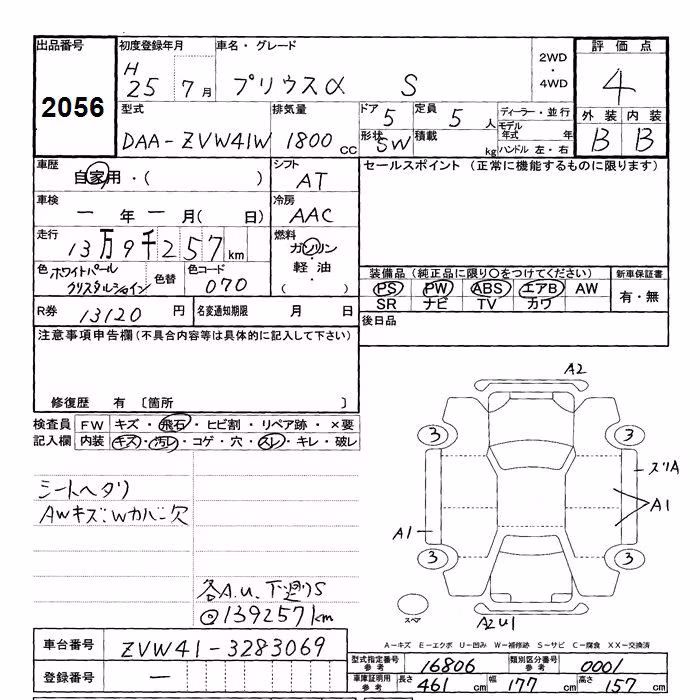 出品番号 初度登録年月 車名・グレード 2WD・4WD 評価点
2056 H25 7月 プリウスα S 4
型式 排気量 ドア 5 定員 5人 ディーラー・並行 外装 内装
DAA-ZVW41W 1800cc 形状 SW 積載 kg モデル年式 年 ハンドル 左・右 B B
車歴 自家用・( ) シフト AT セールスポイント (正常に機能するものに限ります)
車検 ー年ー月( 日) 冷房 AAC
走行 13万9千257km 燃料 ガソリン・軽油・( )
色 ホワイトパールクリスタルシャイン 色替 色コード 070
装備品(純正品に限り○をつけてください) 新車保証書
PS PW ABS エアB AW 有・無
SR ナビ TV カワ
R券 13120円 名変通知期限 月 日 後日品
注意事項申告欄(不具合内容等は具体的に記入して下さい)
修復歴 有 〔箇所 〕
検査員 FW キズ・飛石・ヒビ割・リペア跡・×要
記入欄 内装 キズ・汚レ・コゲ・穴・スレ・キレ・破レ
シートヘタリ
AWキズ:Wカバー欠
各A.U.下廻りS
◎139257km
A2
3 3
スリA
A1
A1
3 3
スペア
A2U1
A-キズ E-エクボ U-凹み W-補修跡 S-サビ C-腐食 XX-交換済
車台番号 ZVW41-3283069
型式指定番号参考 16806 類別区分番号参考 0001
登録番号 ー
車庫証明用参考 長さ 461cm 幅 177cm 高さ 157cm